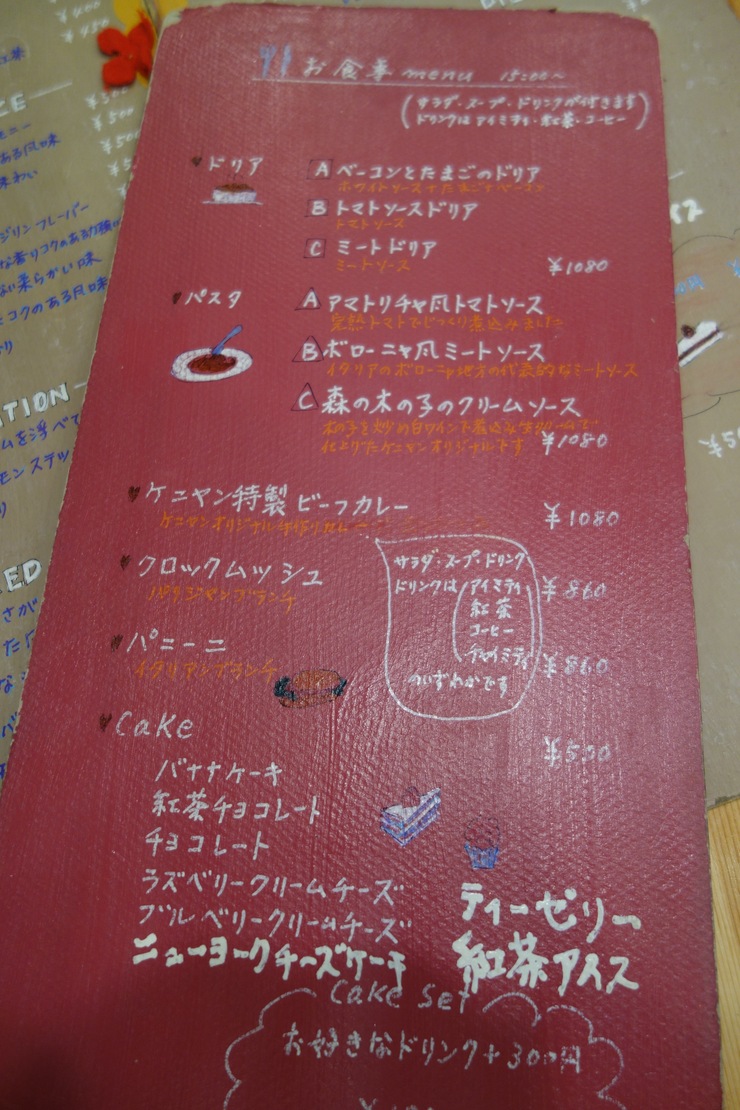 お食事 menu 15:00〜
(サラダ・スープ・ドリンクが付きます
ドリンクは アイミティ・紅茶・コーヒー)
♥ドリア
A ベーコンとたまごのドリア
B トマトソースドリア
トマトソース
C ミートドリア
ミートソース
¥1080
♥パスタ
A アマトリチャ風トマトソース
完熟トマトでじっくり煮込みました
B ボローニャ風ミートソース
イタリアのボローニャ地方の代表的なミートソース
C 森の木の子のクリームソース
木の子を炒め白ワインで煮込み生クリームで
仕上げたケニヤンオリジナルです
¥1080
♥ケニヤン特製ビーフカレー
ケニヤンオリジナル手作りカレー
¥1080
♥クロックムッシュ
パリジャンブランチ
¥860
♥パニーニ
イタリアンブランチ
¥860
サラダ・スープ・ドリンク
ドリンクは アイミティ
紅茶
コーヒー
チャイミティ
のいずれかです
♥Cake
¥550
バナナケーキ
紅茶チョコレート
チョコレート
ラズベリークリームチーズ
ブルーベリークリームチーズ
ニューヨークチーズケーキ
ティーゼリー
紅茶アイス
Cake Set
お好きなドリンク+300円